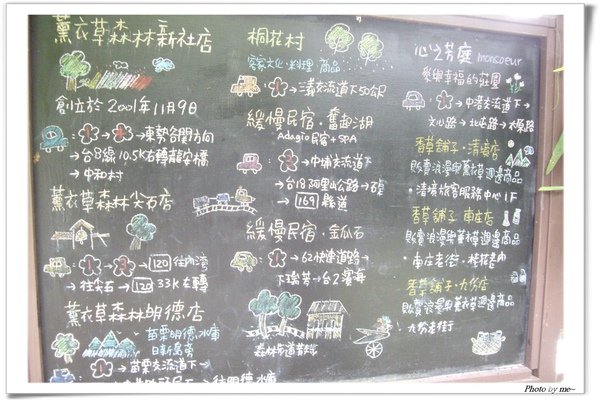 薰衣草森林新社店
創立於2001年11月9日
→東勢谷關方向
→台8線10.5K右轉龍安橋
→中和村
薰衣草森林尖石店
→120往內灣
→往尖石→120 33K左轉
薰衣草森林明德店
苗栗明德水庫
日新島旁
→苗栗交流道下→
桐花村
客家文化・料理 商品
→三義交流道下50公尺
緩慢民宿・奮起湖
Adagio民宿+SPA
→中埔交流道下
→台18阿里山公路→石桌
→169縣道
緩慢民宿・金瓜石
→62快速道路→
下瑞芳→台2濱海
森林島嶼
心之芳庭 monsoeur
幾興幸福的莊園
→中港交流道下→
文心路→北屯路→太原路
香草舖子・清境店
販賣浪漫與薰衣草週邊商品
・清境旅客服務中心1F
香草舖子 南庄店
販賣浪漫與薰衣草週邊商品
・南庄老街・桂花巷內
香草舖子・九份店
販賣浪漫與薰衣草週邊商品
・九份老街
Photo by me~